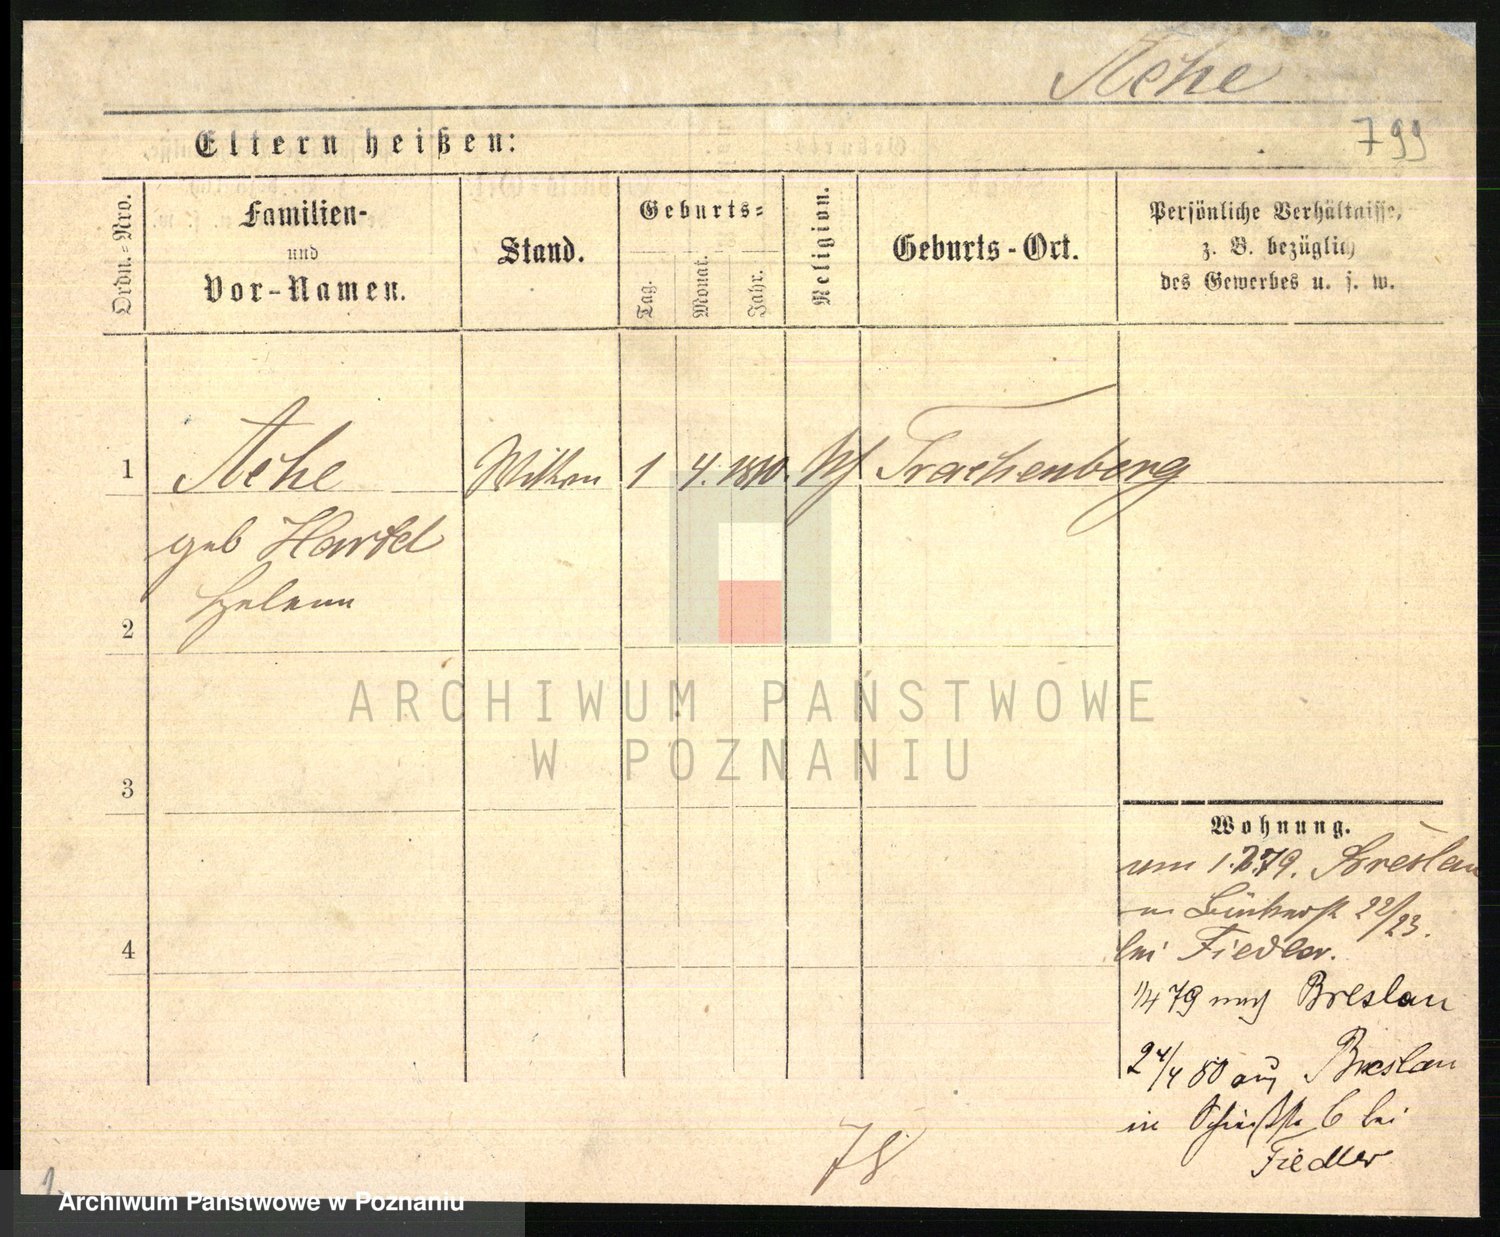 Aehe
799
Eltern heißen:
Ordn.-Nro.
Familien-
und
Vor-Namen.
Stand.
Geburts-
Tag.
Monat.
Jahr.
Religion.
Geburts-Ort.
Persönliche Verhältnisse,
z. B. bezüglich
des Gewerbes u. s. w.
1 Aehe 1 4. 1810. Trachenberg
geb Hartel
Helene
2
3
4
Wohnung.
1.2.79. Breslau
22/23.
bei Fiedler.
1/4 79 nach Breslau
24/4 80 aus Breslau
in 6 bei
Fiedler
78
1.
ARCHIWUM PAŃSTWOWE
W POZNANIU
Archiwum Państwowe w Poznaniu